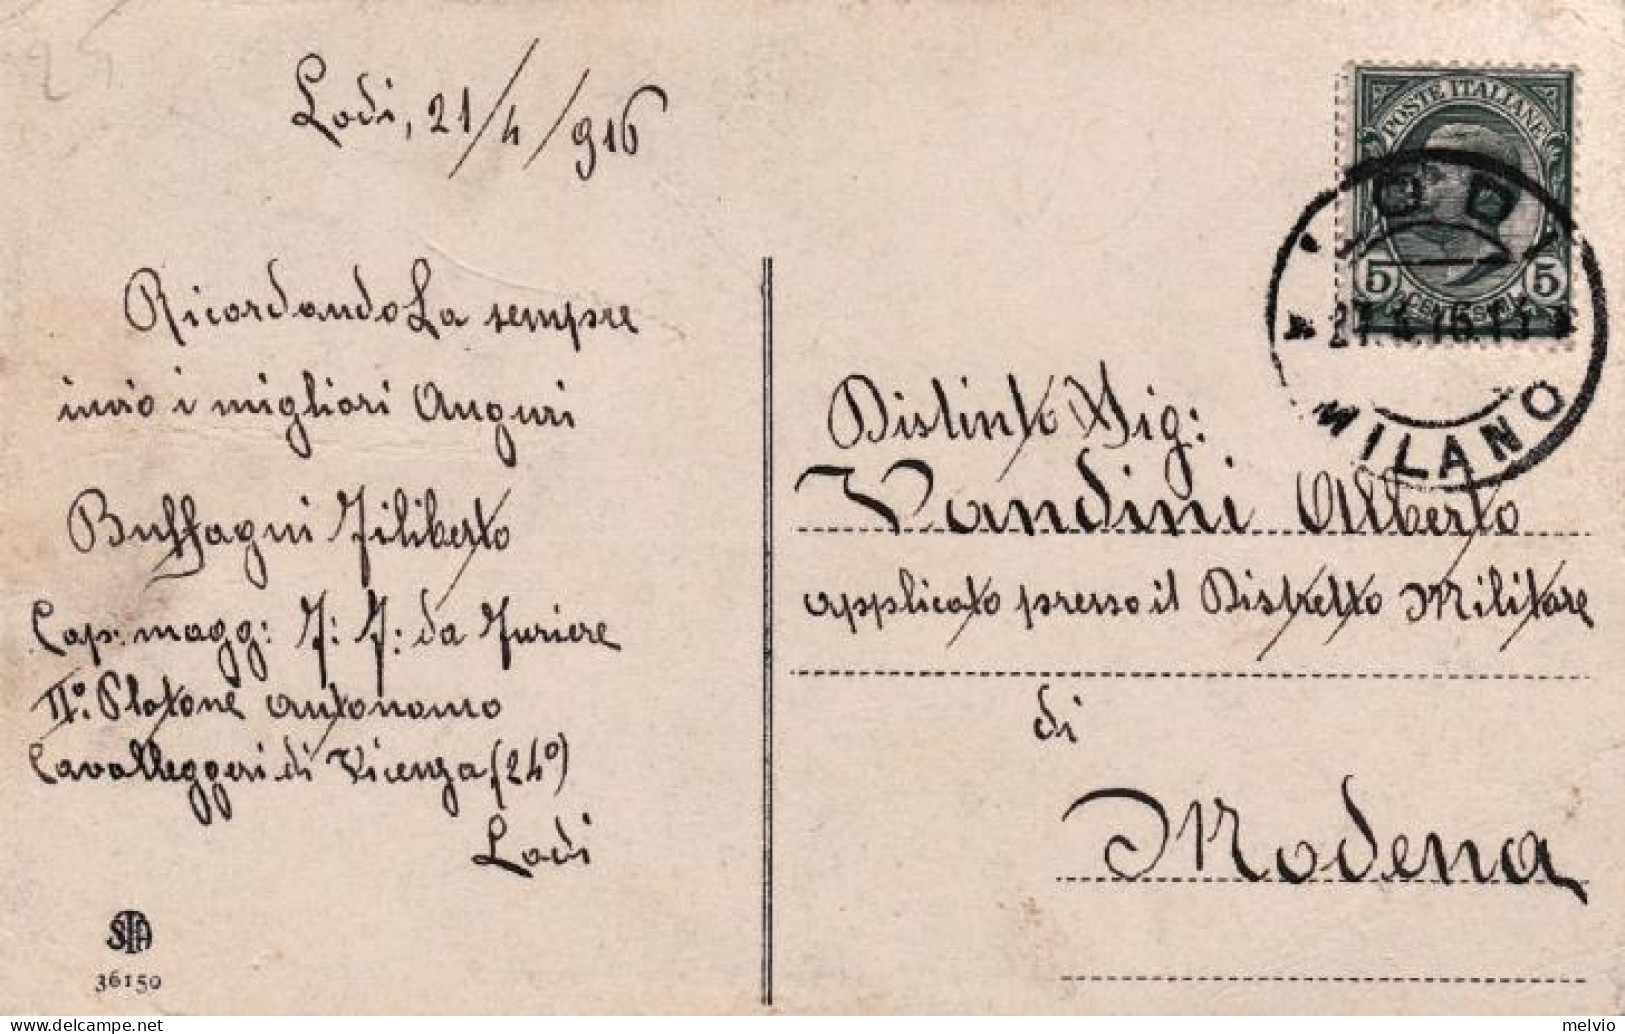 25
Lodi, 21/4/916
RicordandoLa sempre
invio i migliori Auguri
Buffagni Filiberto
Cap. magg: F: F: da Furiere
IIº: Plotone autonomo
Cavalleggeri di Vicenza (24º)
Lodi
STA
36150
POSTE ITALIANE
5 CENTESIMI 5
LODI
MILANO
Distinto Sig:
Vandini Alberto
applicato presso il Distretto Militare
di
Modena
melvio